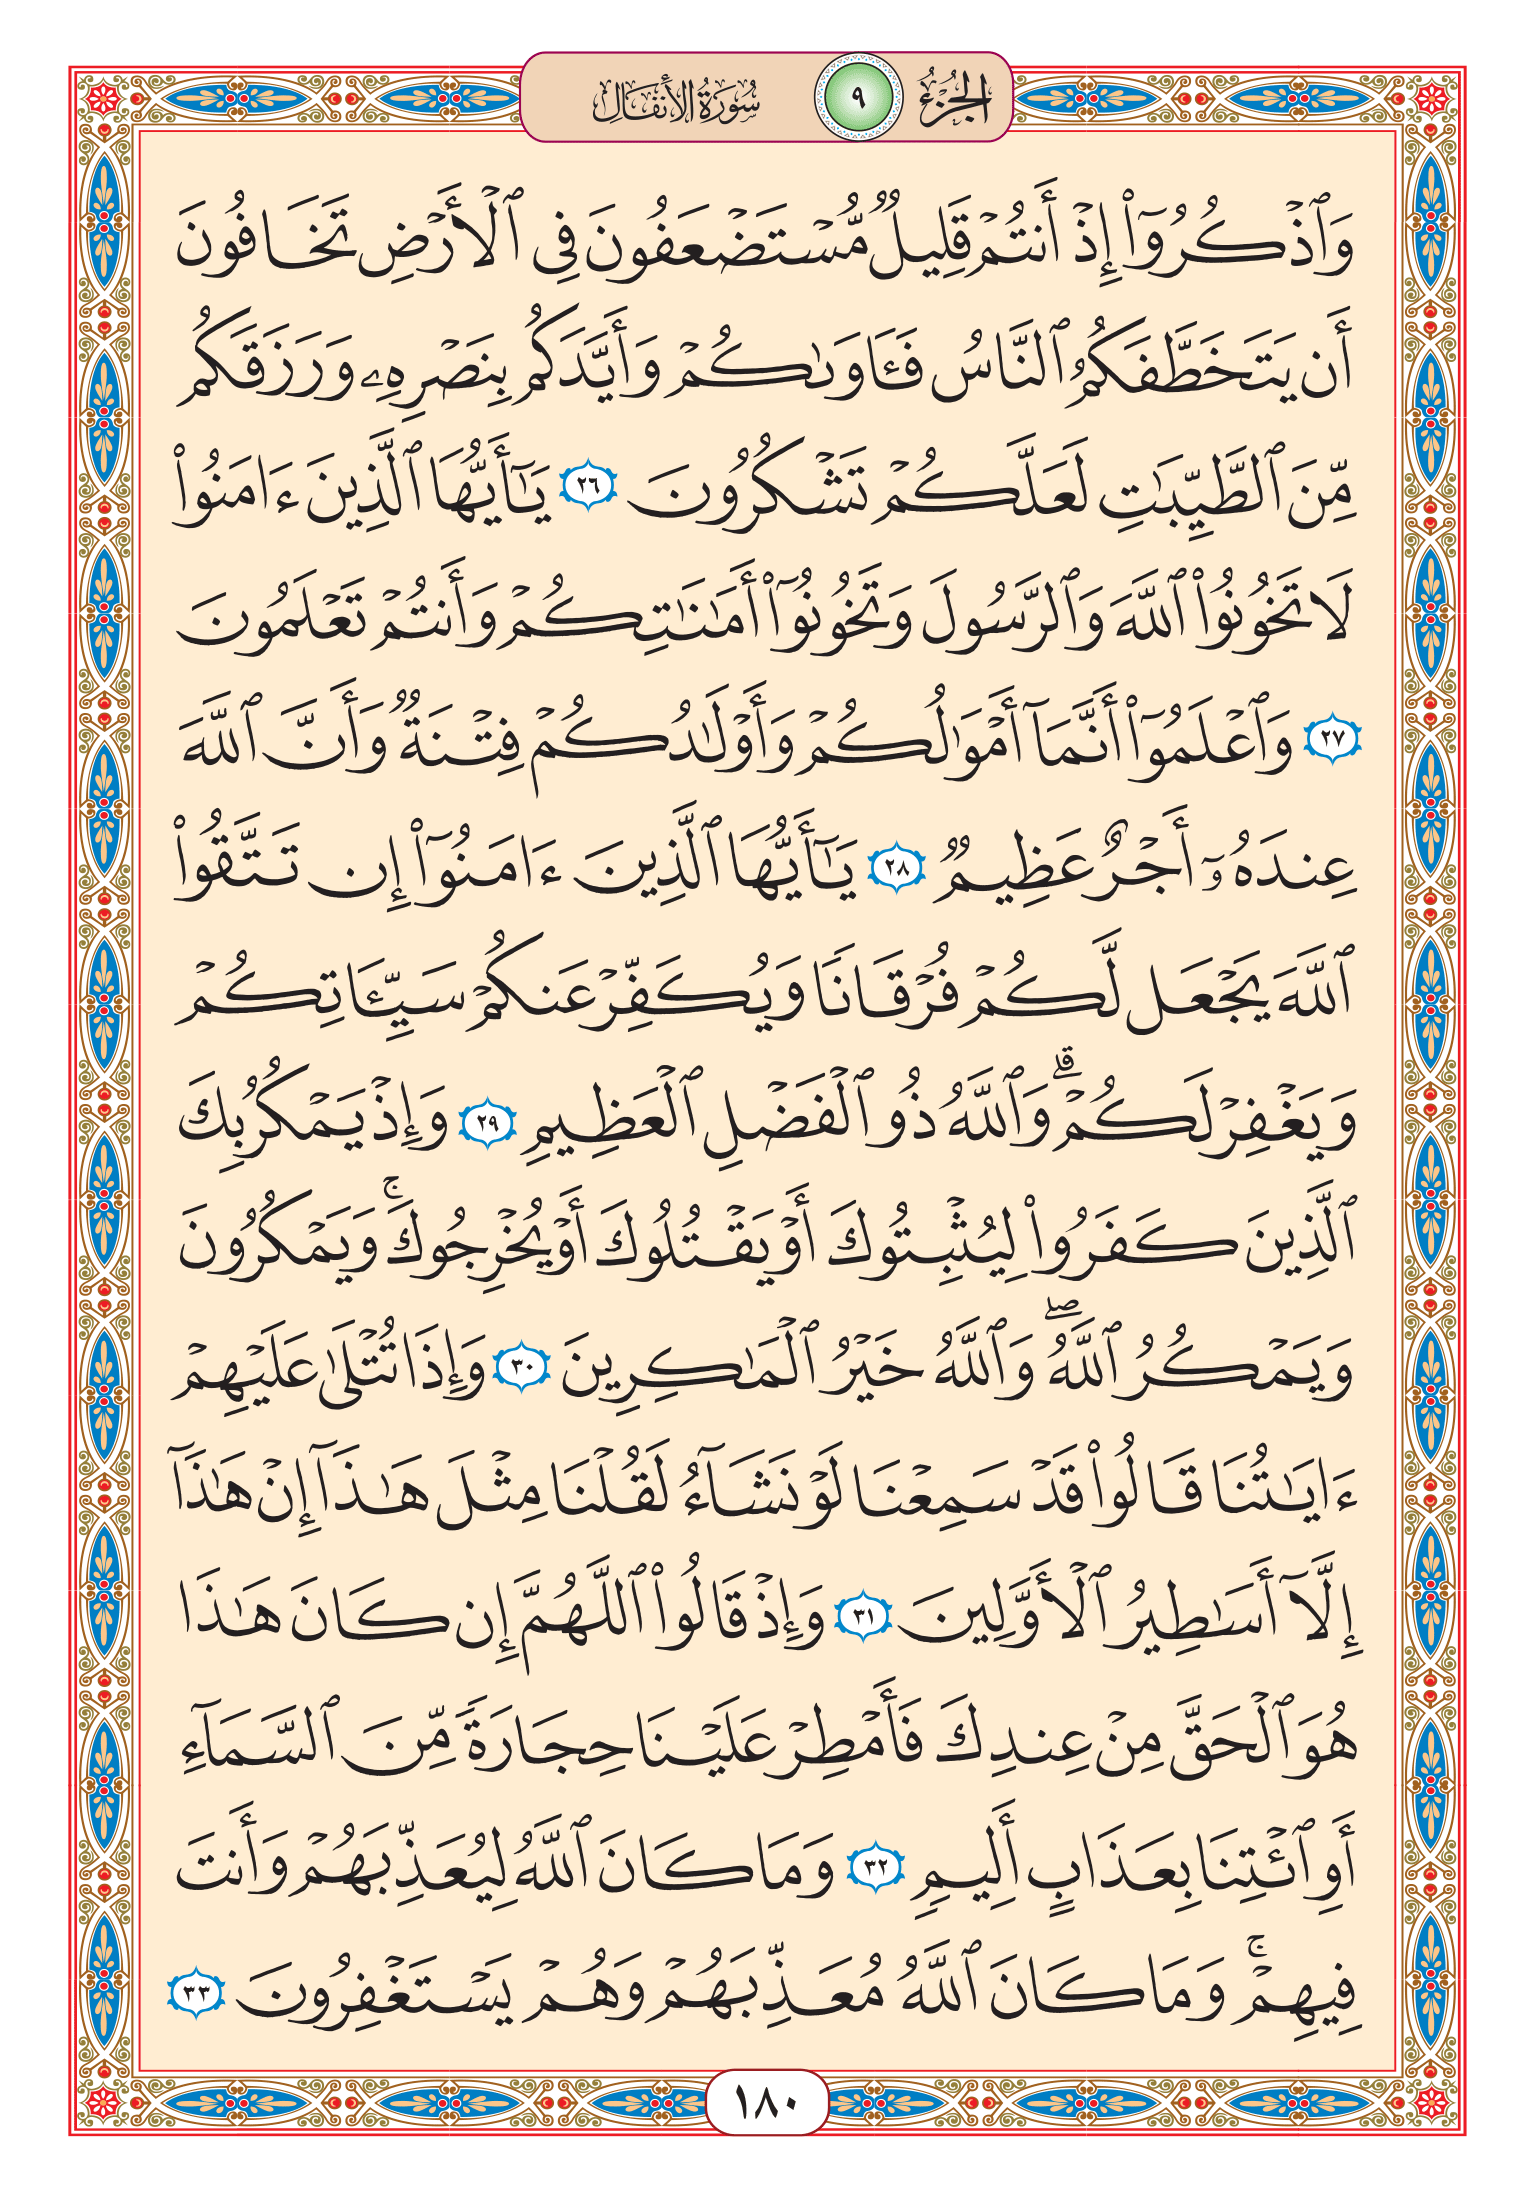 الجزء ٩ سورة الأنفال
وَٱذۡكُرُوٓاْ إِذۡ أَنتُمۡ قَلِيلٞ مُّسۡتَضۡعَفُونَ فِي ٱلۡأَرۡضِ تَخَافُونَ
أَن يَتَخَطَّفَكُمُ ٱلنَّاسُ فَـَٔاوَىٰكُمۡ وَأَيَّدَكُم بِنَصۡرِهِۦ وَرَزَقَكُم
مِّنَ ٱلطَّيِّبَٰتِ لَعَلَّكُمۡ تَشۡكُرُونَ ٢٦ يَٰٓأَيُّهَا ٱلَّذِينَ ءَامَنُواْ
لَا تَخُونُواْ ٱللَّهَ وَٱلرَّسُولَ وَتَخُونُوٓاْ أَمَٰنَٰتِكُمۡ وَأَنتُمۡ تَعۡلَمُونَ
٢٧ وَٱعۡلَمُوٓاْ أَنَّمَآ أَمۡوَٰلُكُمۡ وَأَوۡلَٰدُكُمۡ فِتۡنَةٞ وَأَنَّ ٱللَّهَ
عِندَهُۥٓ أَجۡرٌ عَظِيمٞ ٢٨ يَٰٓأَيُّهَا ٱلَّذِينَ ءَامَنُوٓاْ إِن تَتَّقُواْ
ٱللَّهَ يَجۡعَل لَّكُمۡ فُرۡقَانٗا وَيُكَفِّرۡ عَنكُمۡ سَيِّـَٔاتِكُمۡ
وَيَغۡفِرۡ لَكُمۡۗ وَٱللَّهُ ذُو ٱلۡفَضۡلِ ٱلۡعَظِيمِ ٢٩ وَإِذۡ يَمۡكُرُ بِكَ
ٱلَّذِينَ كَفَرُواْ لِيُثۡبِتُوكَ أَوۡ يَقۡتُلُوكَ أَوۡ يُخۡرِجُوكَۚ وَيَمۡكُرُونَ
وَيَمۡكُرُ ٱللَّهُۖ وَٱللَّهُ خَيۡرُ ٱلۡمَٰكِرِينَ ٣٠ وَإِذَا تُتۡلَىٰ عَلَيۡهِمۡ
ءَايَٰتُنَا قَالُواْ قَدۡ سَمِعۡنَا لَوۡ نَشَآءُ لَقُلۡنَا مِثۡلَ هَٰذَآ إِنۡ هَٰذَآ
إِلَّآ أَسَٰطِيرُ ٱلۡأَوَّلِينَ ٣١ وَإِذۡ قَالُواْ ٱللَّهُمَّ إِن كَانَ هَٰذَا
هُوَ ٱلۡحَقَّ مِنۡ عِندِكَ فَأَمۡطِرۡ عَلَيۡنَا حِجَارَةٗ مِّنَ ٱلسَّمَآءِ
أَوِ ٱئۡتِنَا بِعَذَابٍ أَلِيمٖ ٣٢ وَمَا كَانَ ٱللَّهُ لِيُعَذِّبَهُمۡ وَأَنتَ
فِيهِمۡۚ وَمَا كَانَ ٱللَّهُ مُعَذِّبَهُمۡ وَهُمۡ يَسۡتَغۡفِرُونَ ٣٣
١٨٠